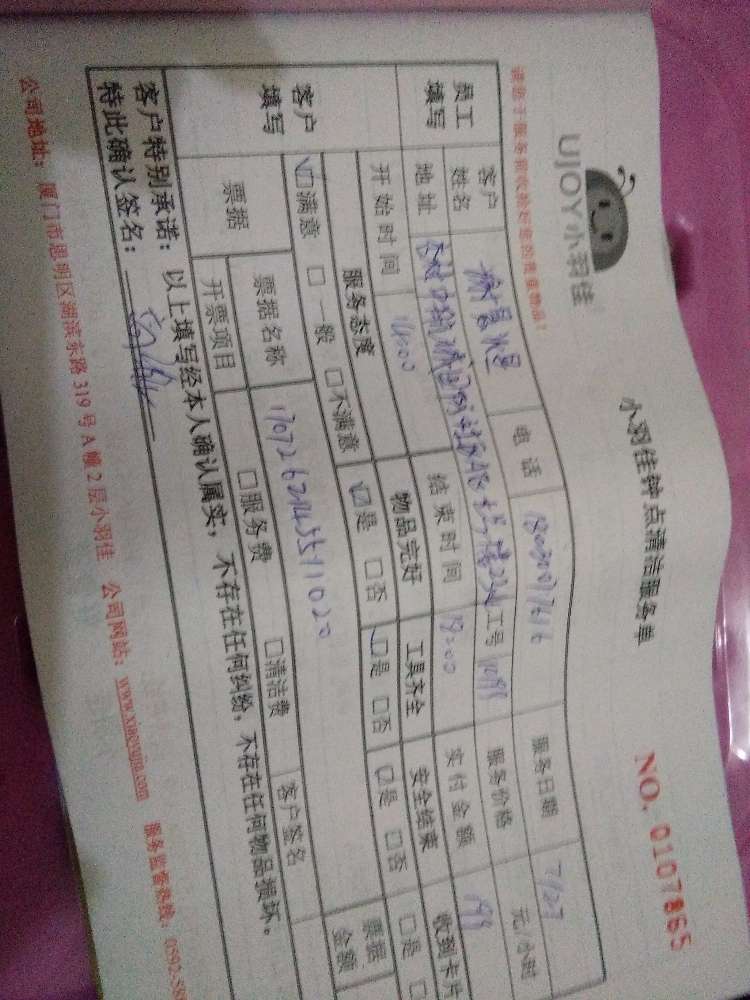 UJOY小羽佳
小羽佳钟点清洁服务单
NO. 0107865
请您于服务前收捡好您的贵重物品!
员工填写
客户姓名
电话
服务日期 7/27
地址
工号
服务价格 元/小时
开始时间 16:00
结束时间 19:00
实付金额 199
客户填写
服务态度
物品完好
工具齐全
安全结束
收到卡片
☑满意 □一般 □不满意
☑是 □否
☑是 □否
☑是 □否
□是
票据
票据名称 17072621455411020
票据金额
开票项目
□服务费
□清洁费
客户签名
客户特别承诺：以上填写经本人确认属实，不存在任何纠纷，不存在任何物品损坏。
特此确认签名：
公司地址：厦门市思明区湖滨东路319号A幢2层小羽佳 公司网站：www.xiaoyujia.com 服务监督热线：0592-